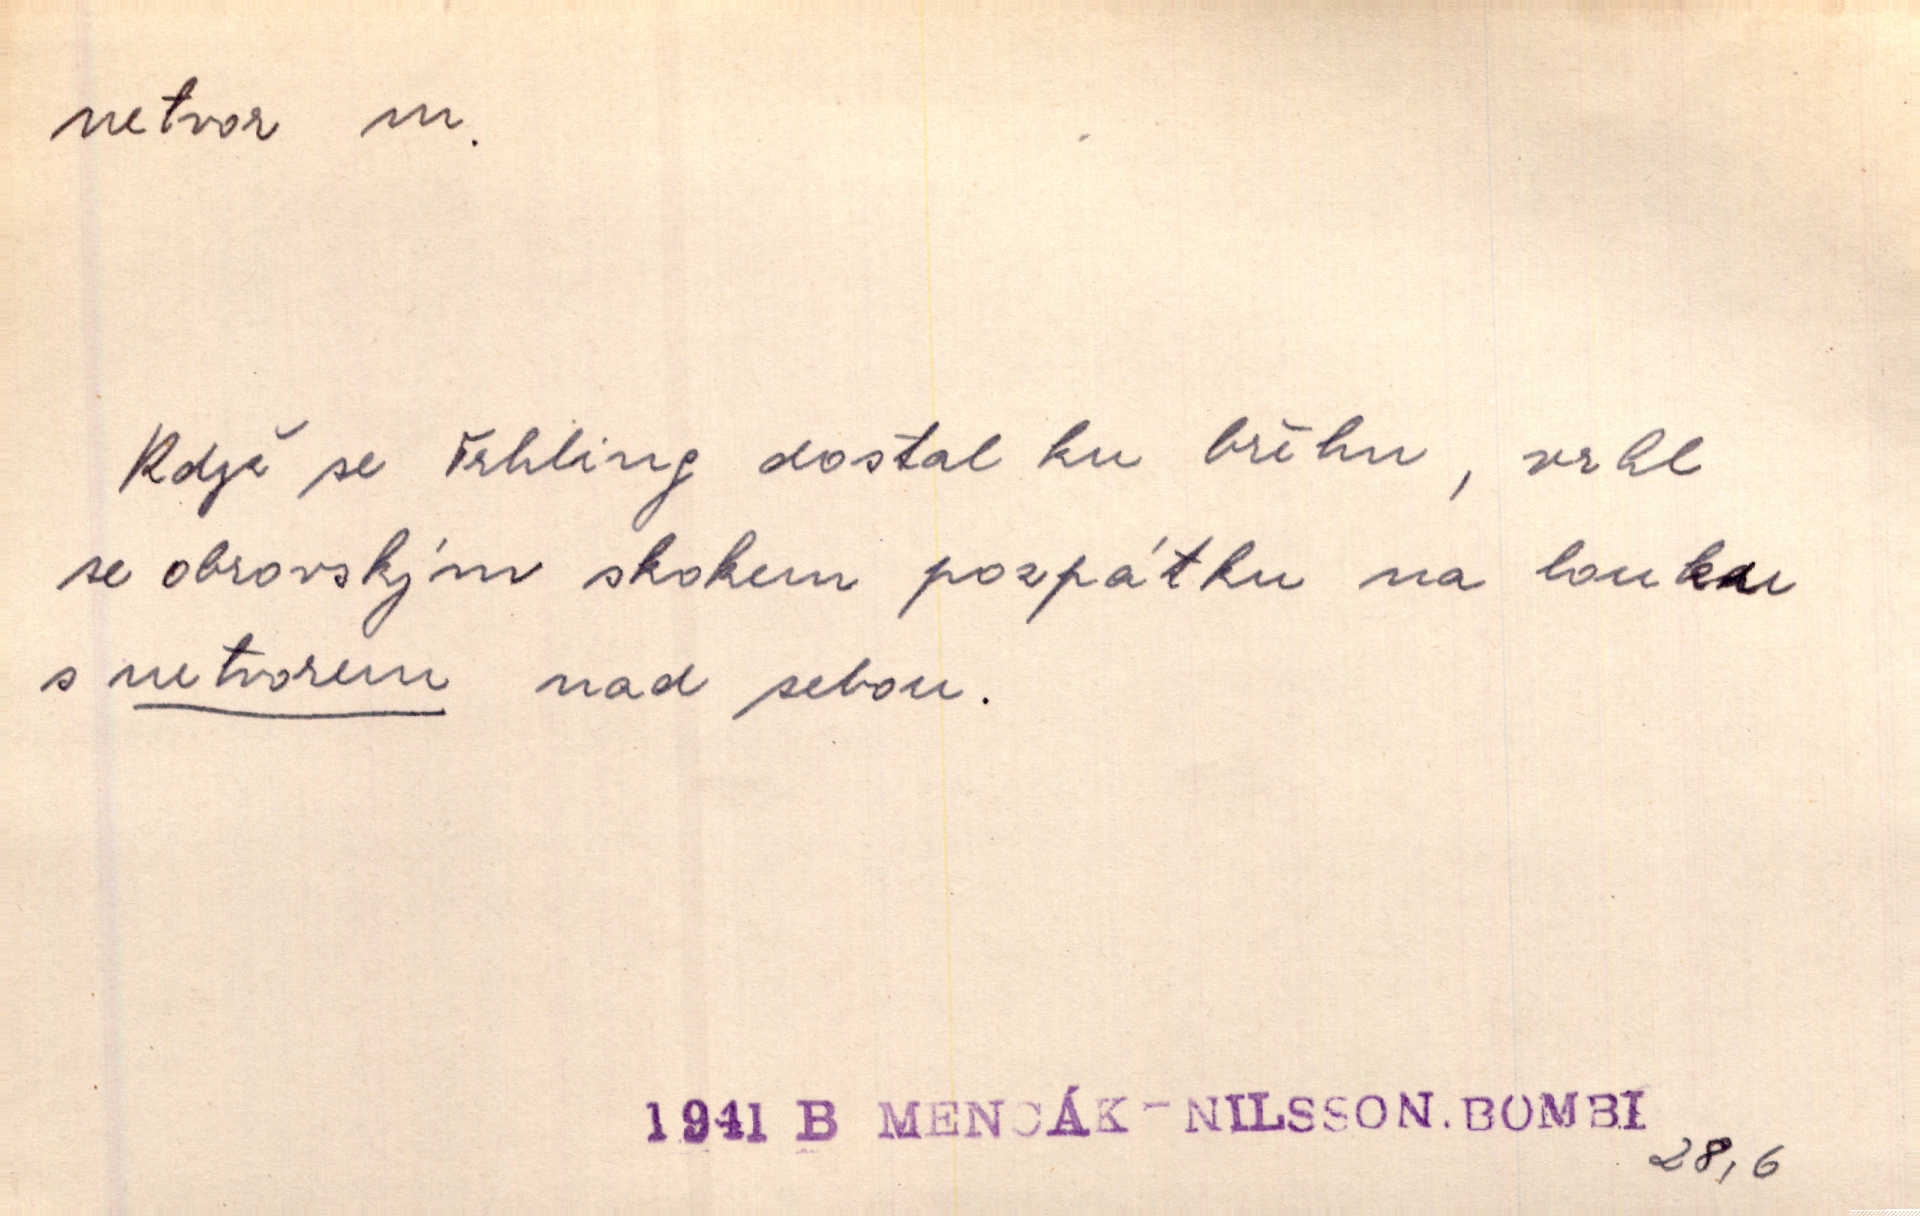 netvor m.
Když se Yrhling dostal ku břehu, vrhl
se obrovským skokem pozpátku na louku
s netvorem nad sebou.
1941 B MENČÁK-NILSSON.BOMBI
28,6